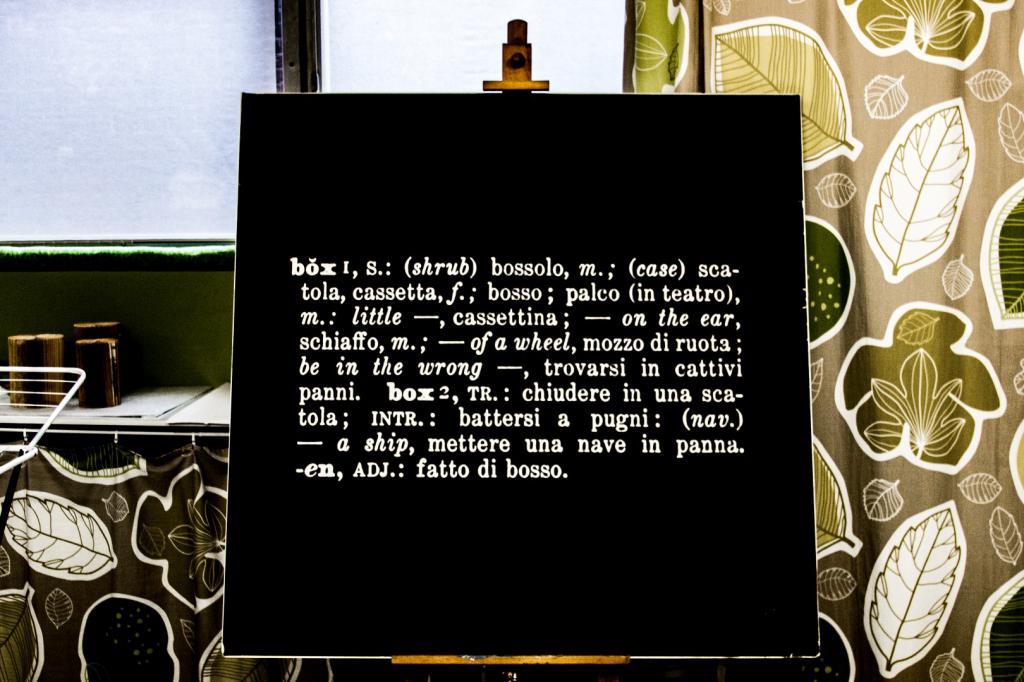 bŏx 1, S.: (shrub) bossolo, m.; (case) sca-
tola, cassetta, f.; bosso; palco (in teatro),
m.: little —, cassettina; — on the ear,
schiaffo, m.; — of a wheel, mozzo di ruota;
be in the wrong —, trovarsi in cattivi
panni. box 2, TR.: chiudere in una sca-
tola; INTR.: battersi a pugni: (nav.)
— a ship, mettere una nave in panna.
-en, ADJ.: fatto di bosso.